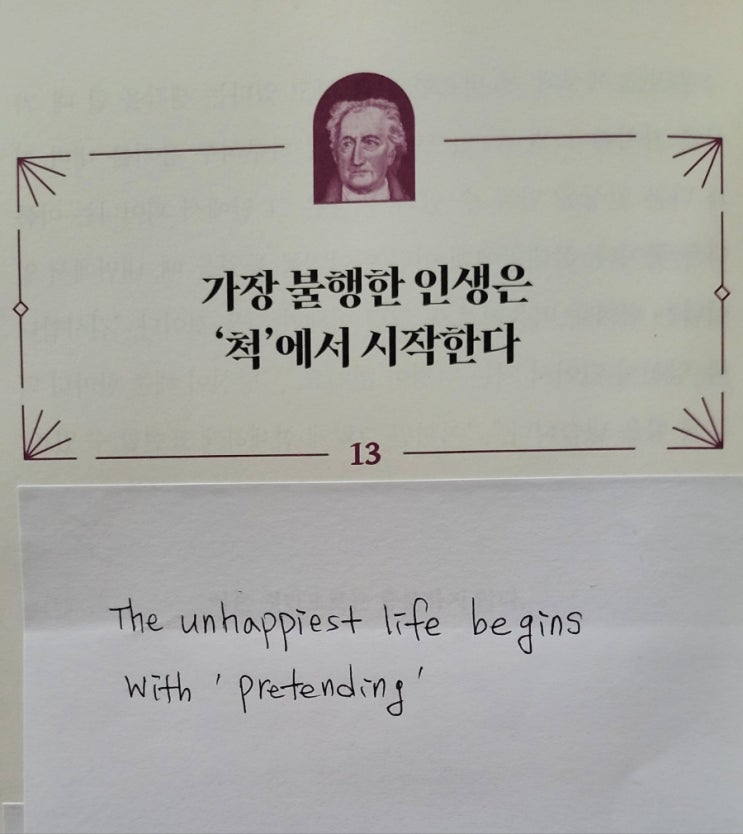 가장 불행한 인생은
‘척’에서 시작한다
13
The unhappiest life begins
with 'pretending'